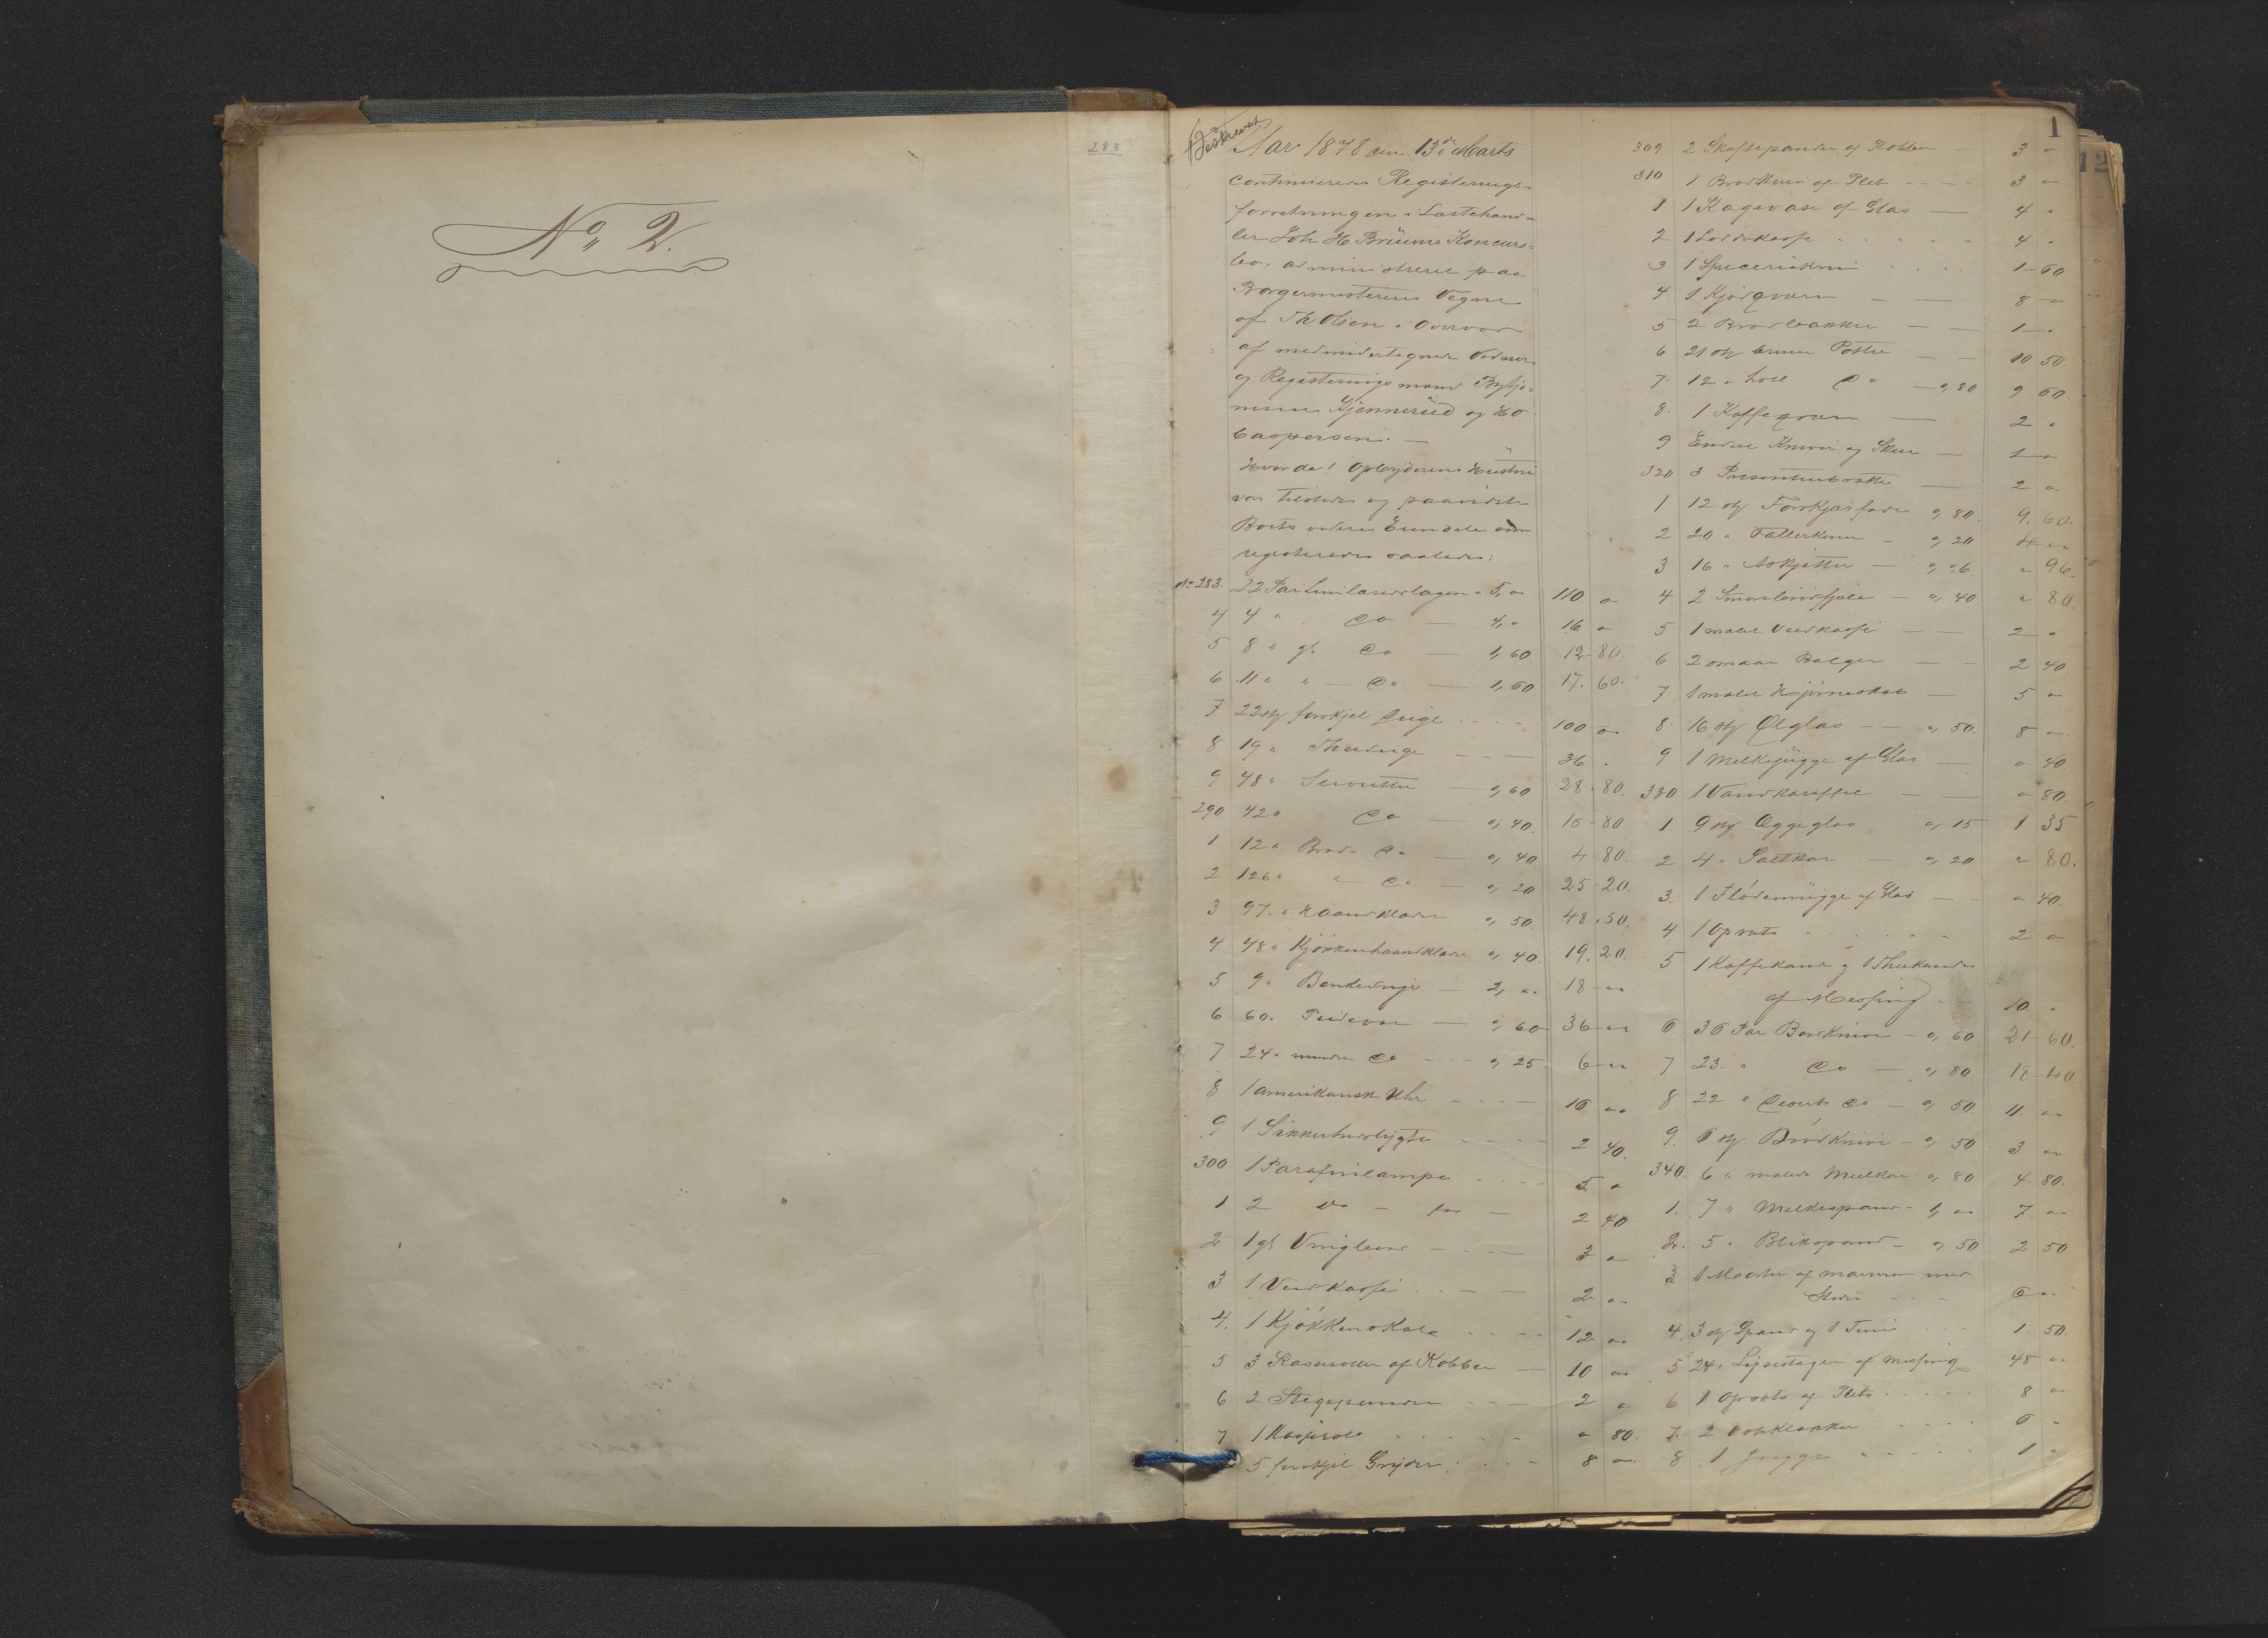 No 2.
283
Beskrevet
1
12
Aar 1878 den 13de Marts
continueredes Registerings-
forretningen i Lastehand-
ler Joh H Bruuns Koncurs-
bo, administreret paa
Borgermesterens Vegne
af Th Olsen i Overvær
af medundertegnede Vidner
og Registeringsmænd Bytje-
nerne Kjennerud og HO
Caspersen. —
Hvor da! Opbyderens Hustru
var tilstede og paaviste
Boets videre Eiendele som
registeredes saaledes:
No 283. 22 Par Linlaredslagen a 5, " 110 "
4 4 " Do — 4, " 16 "
5 8 " gl Do — 1,60 12-80.
6 11 " " — Do — 1,60 17.60.
7 22 st forskjel Duge 100 "
8 19 " Theduge — 36 "
9 48 " Servietter — ",60 28.80.
290 42 " Do — ",40 16-80
1 12 " Brode Do — ",40 4-80.
2 126 " " Do — ",20 25-20.
3 97. " Haandklæder ",50. 48.50.
4 48 " Kjøkkenhaandklæder ",40. 19.20.
5 9 " — 2, " 18 "
6 60. Pudevar — ",60 36 "
7 24 " mindre Do — ",25. 6 "
8 1 amerikansk Uhr — 16 "
9 1 Sikkerhedslygte 2 40.
300 1 Parafinlampe 5 "
1 2 Do — for — 2 40
2 1 gl — 3 "
3 1 Vedkasse — 2 "
4. 1 Kjøkkenskab 12 "
5 3 Kasseroller af Kobber — 10 "
6 2 Stegepander — 2 "
7 1 Kasserol " 80.
5 forskjel Gryder 8 "
309 2 Skaftepander af Kobber — 3 "
310 1 Brødkurv af Plet 3 "
1 1 Kagevase af Glas — 4 "
2 4 "
3 1 1-60
4 1 — 8 "
5 2 Brødbakker — 1 "
6 21 st brune Potter — 10 50
7 12 " hvll Do — ",80 9 60
8. 1 Kaffeqværn — 2 "
9 Endel Knive og Skeer — 1 "
320 3 Presenterbrætter — 2 "
1 12 st Forskjel fade ",80. 9.60.
2 20 " Tallerkener — ",20 4 "
3 16 " Askjetter — ",06 " 96.
4 2 — ",40 " 80.
5 1 malet Vedkasse — 2 "
6 2 smaa Balger — 2 40
7 1 malet Hjørneskab — 5 "
8 16 st Ølglas — ",50. 8 "
9 1 Melkejugge af Glas — " 40
330 1 Vandkaraffel — " 80
1. 9 st Æggeglas ",15 1 35
2 4 " Saltkar — ",20 " 80.
3. 1 Flødemugge af Glas — " 40.
4 1 Opsats 2 "
5 1 Kaffekande og 1 Thekande
af Messing 10 "
6 36 Par Bordknive — ",60 21-60.
7 23. " Do — ",80 18-40
8 22 " Desert Do — ",50. 11. "
9. 6 st Brødknive — ",50 3 "
340. 6 " malede Melkekar ",80 4.80.
1. 7 " Melkespand — 1, " 7. "
2. 5 " Blikspand — ",50 2 50
3 1 Morter af Marmor med
Støder 6 "
4. 3 st Spand og 1 Tine 1.50.
5 24 " Lysestager af Messing 48 "
6 1 Opsats af Plets 8 "
7. 2 6 "
8 1 Jugge 1 "